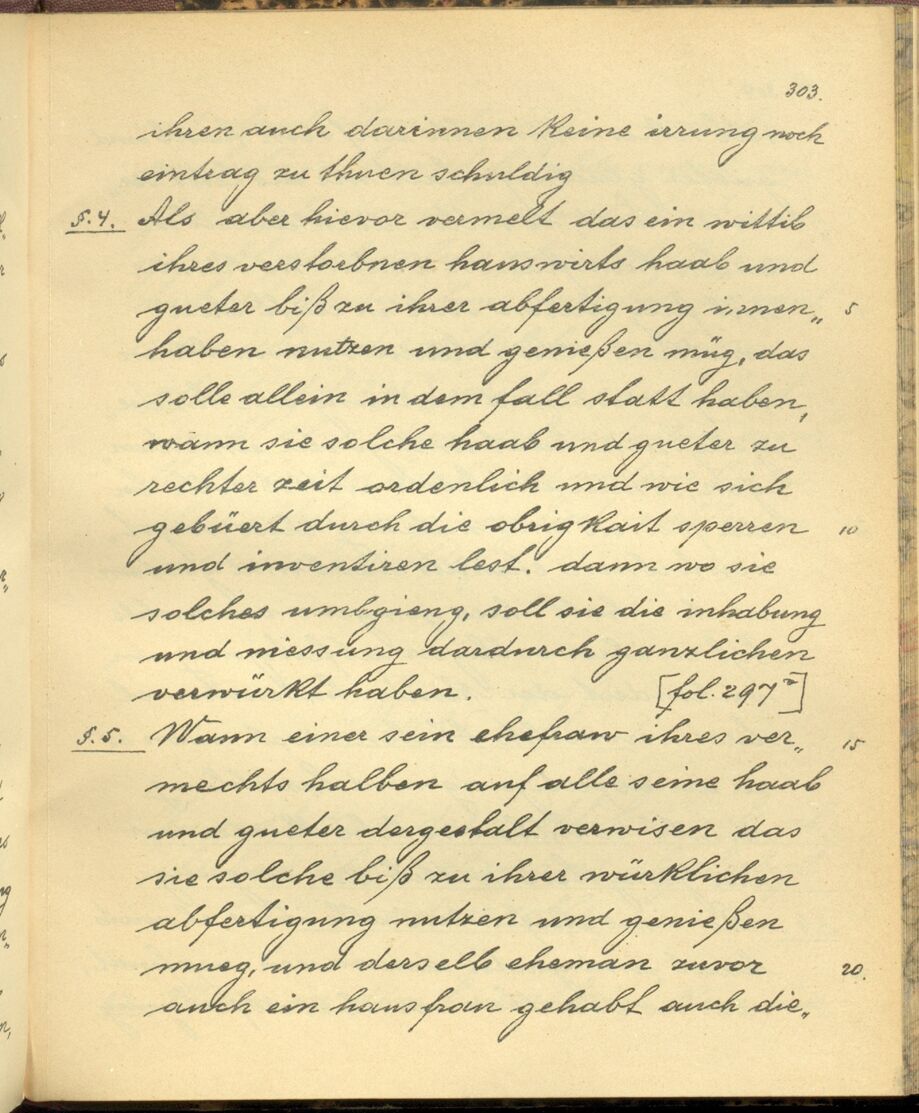 303.
ihren auch darinnen keine irrung noch
eintrag zu thuen schuldig
§. 4. Als aber hievor vermelt das ein wittib
ihres verstorbnen hauswirts haab und
gueter biß zu ihrer abfertigung innen„ 5
haben nutzen und genießen müg, das
solle allein in dem fall statt haben,
wann sie solche haab und gueter zu
rechter zeit ordenlich und wie sich
gebüert durch die obrigkait sperren 10
und inventiren lest. dann wo sie
solches umbgieng, soll sie die inhabung
und niessung dardurch ganzlichen
verwürkt haben. [fol. 297v]
§. 5. Wann einer sein ehefraw ihres ver„ 15
mechts halben auf alle seine haab
und gueter dergestalt verwisen das
sie solche biß zu ihrer würklichen
abfertigung nutzen und genießen
mueg, und derselb eheman zuvor 20.
auch ein hausfrau gehabt auch die„